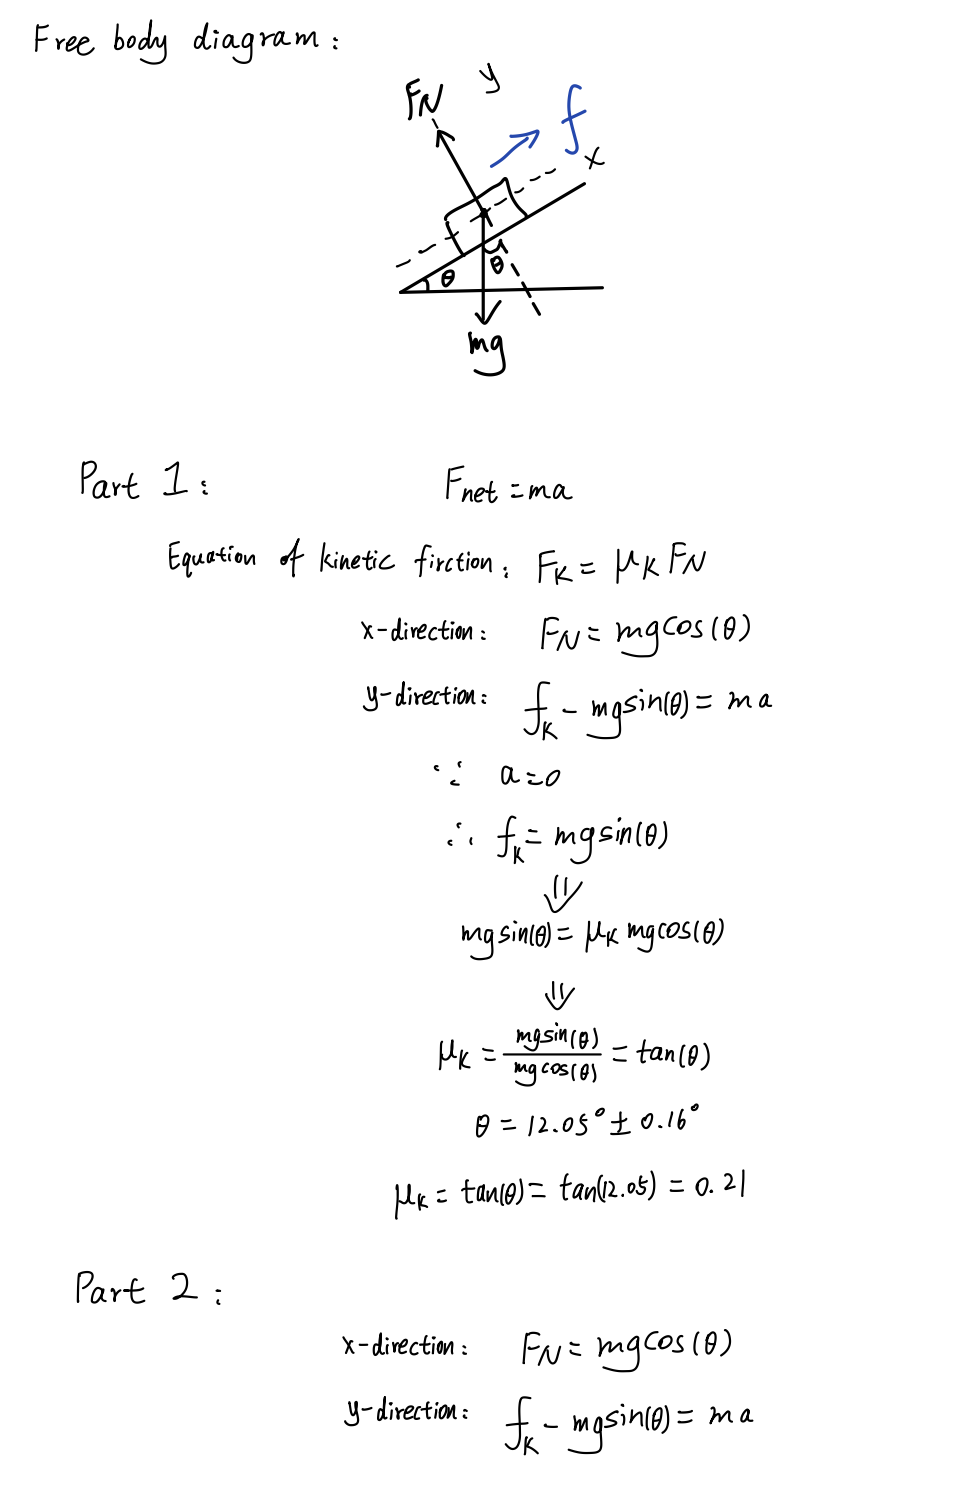 Free body diagram:
y
FN
f
x
θ
θ
mg
Part 1:
Fnet = ma
Equation of kinetic firction: FK = μK FN
x-direction: FN = mgcos(θ)
y-direction: fK - mgsin(θ) = ma
∵ a=0
∴ fK = mgsin(θ)
⇓
mgsin(θ) = μK mgcos(θ)
⇓
μK = mgsin(θ)/mgcos(θ) = tan(θ)
θ = 12.05° ± 0.16°
μK = tan(θ) = tan(12.05) = 0.21
Part 2:
x-direction: FN = mgcos(θ)
y-direction: fK - mgsin(θ) = ma